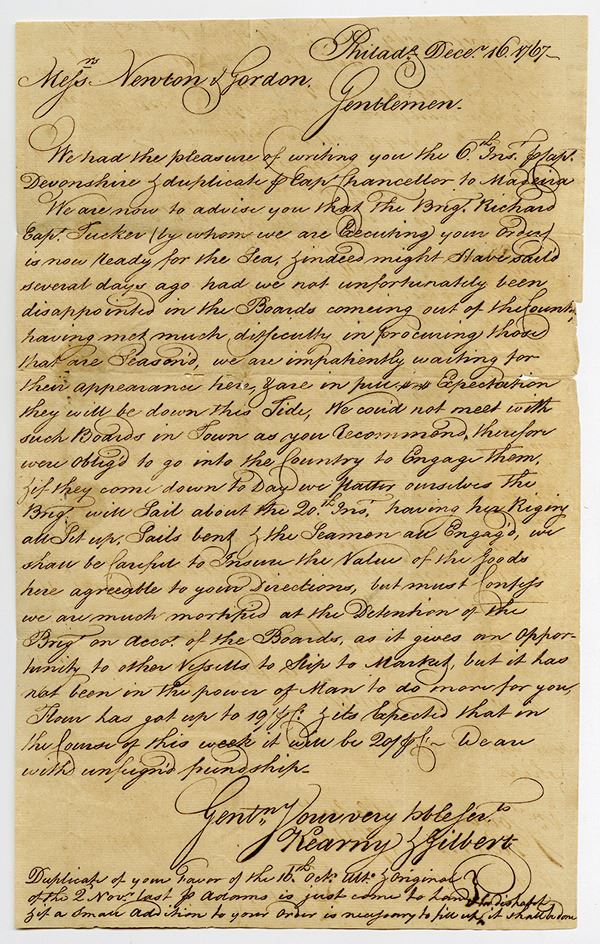 Philada. Decer. 16. 1767
Messrs. Newton & Gordon.
Gentlemen.
We had the pleasure of writing you the 6th. Inst. ⅌ Capt.
Devonshire & duplicate ⅌ Capt. Chancellor to Madeira
We are now to advise you that the Brigt. Richard
Capt. Tucker (by whom we are Executing your Orders
is now Ready for the Sea, & indeed might Have saild
several days ago had we not unfortunately been
disappointed in the Boards comeing out of the Country,
having met much difficulty in procuring those
that are Season'd, we are impatiently waiting for
their appearance here, & are in full Expectation
they will be down this Tide, We could not meet with
such Boards in Town as you Recommend, therefore
were oblig'd to go into the Country to Engage them,
& if they come down to Day we flatter ourselves the
Brigt. will Sail about the 20th. Inst. having her Riging
all Set up, Sails bent & the Seamen all Engag'd, we
shall be Careful to Insure the Value of the Goods
here agreable to your Directions, but must Confess
we are much mortified at the Detention of the
Brigt. on accot. of the Boards, as it gives an Oppor-
tunity to other Vessells to Slip to Market, but it has
not been in the power of Man to do more for you,
Flour has got up to 19/ ⅌ Ct. & its Expected that in
the Course of this week it will be 20/ ⅌ Ct. We are
with unfeign'd friendship
Gentn. Your very hble Servts
Kearny & Gilbert
Duplicate of your Favor of the 16th. Octr. Ulto. & Original
of the 2 Novr. last ⅌ Adams is just come to hand
& if a Small addition to your Order is necessary to fill up, it shall be done